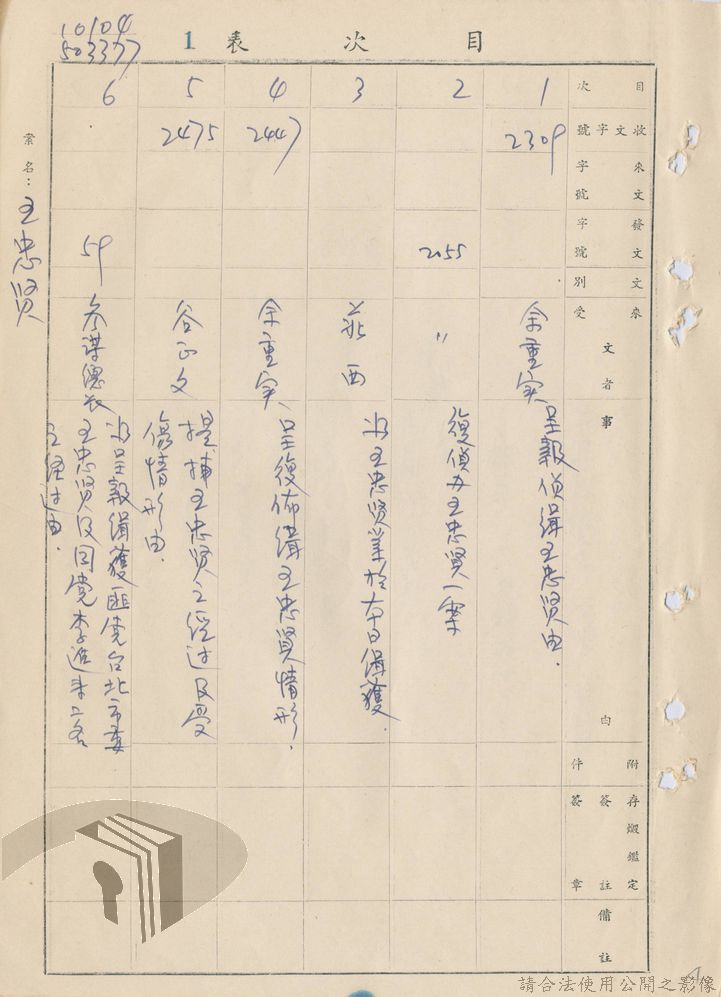 10104
503377
目次表 1
案名：王忠贤
目次
收文字號
來文字號
發文字號
文別
來受文者
事由
附件
存燬鑑定
簽註
簽章
備註
1
2309
余重实
呈報偵緝王忠贤由.
2
2055
〃
復偵办王忠贤一案
3
王忠贤業於本日緝獲.
4
2447
余重实
呈復佈緝王忠贤情形.
5
2475
谷正文
提捕王忠贤之經过及受
傷情形由.
6
59
参謀總长
呈報緝獲匪党台北市委
王忠贤及同党李進来二名
之經过由.
請合法使用公開之影像